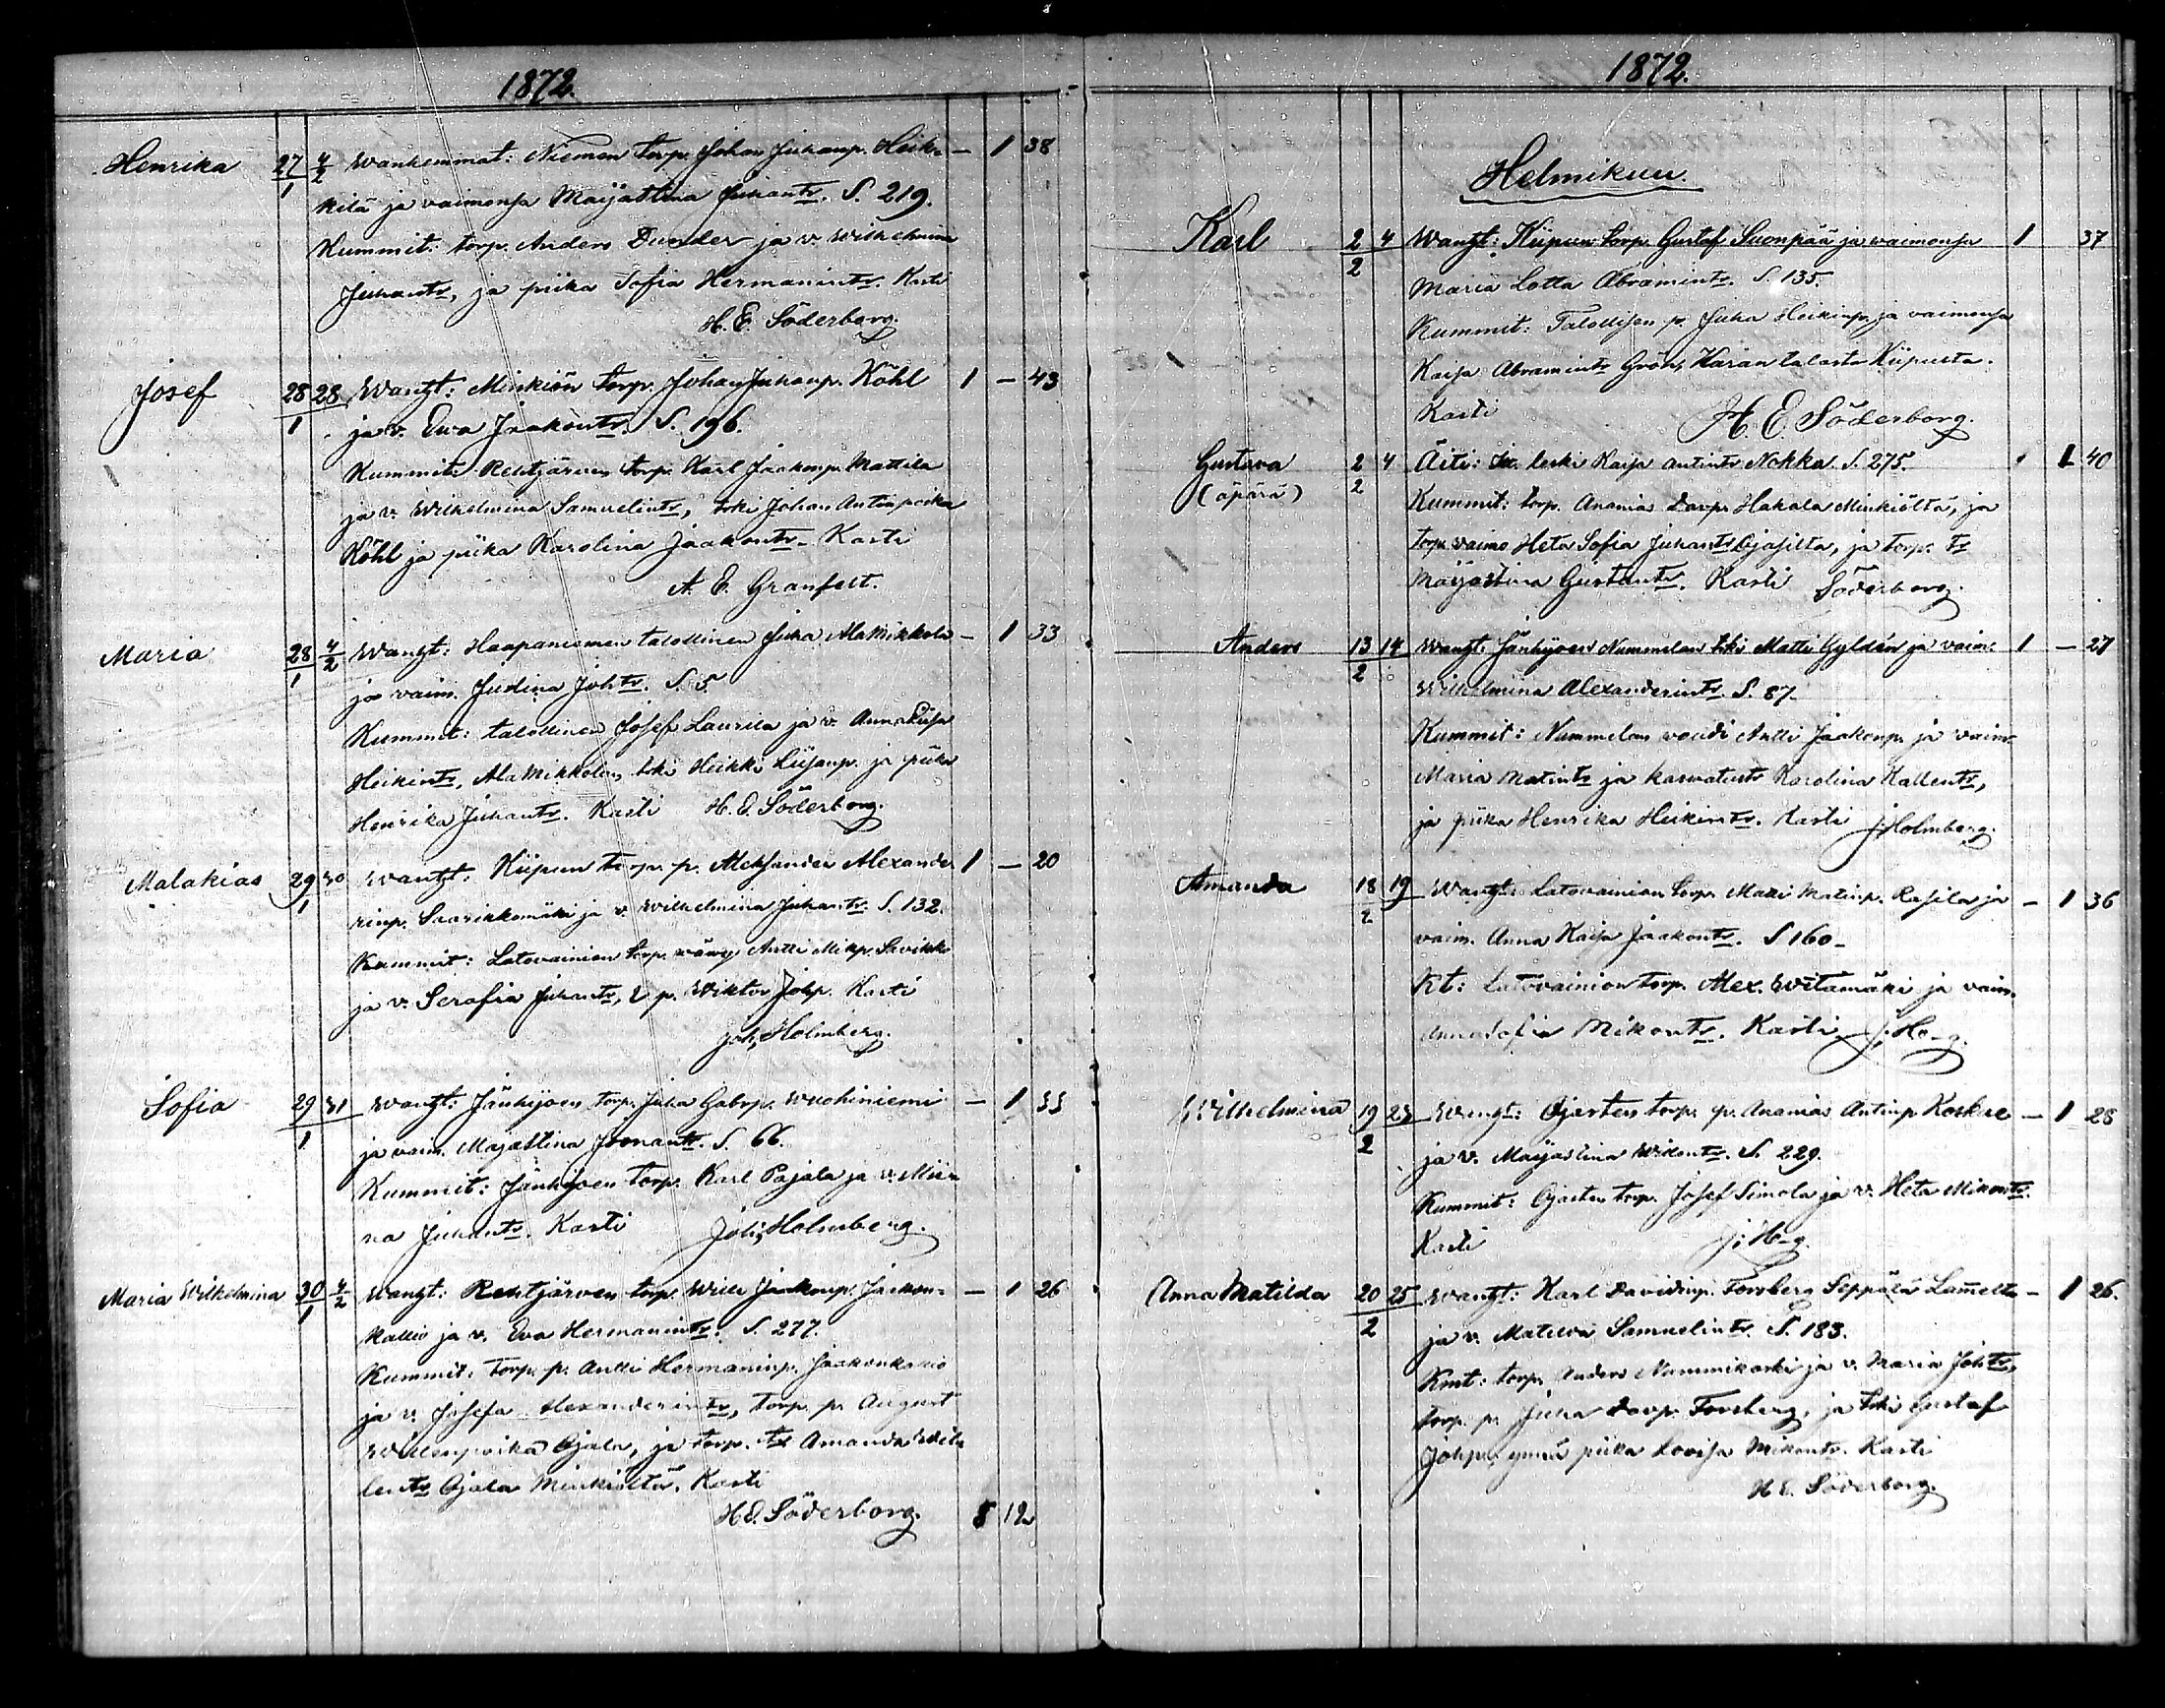 1872.
Henrika 27/1 4/2 Wanhemmat: Niemen torp. Johan Juhanp. Heik- — 1 38
kilä ja vaimonsa Maijastina Juhantr. S. 219.
Kummit: torp. Anders Dunder ja v. Wilhelmina
Juhantr, ja piika Sofia Hermanintr. Kasti
H. E. Söderborg.
Josef 28/1 28 Wanht: Minkiön torp. Johan Juhanp. Köhl 1 — 43
ja v. Ewa Jaakontr. S. 196.
Kummit: Rehtjärven torp. Karl Jaakonp. Mattila
ja v. Wilhelmina Samuelintr, trki Johan Antinpoika
Köhl ja piika Karolina Jaakontr. Kasti
A. E. Granfelt.
Maria 28/1 4/2 Wanht: Haapaniemen talollinen Juha AlaMikkola — 1 33
ja vaim. Judina Johtr. S. 5.
Kummit: talollinen Josef Laurila ja v. AnnaKaisa
Heikintr, AlaMikkolan trki Heikki Liisanp. ja piika
Henrika Juhantr. Kasti H. E. Söderborg.
Malakias 29/1 30 Wanht: Kiipun torp. p. Aleksander Alexande 1 — 20
rinp. Saarikkomäki ja v. Wilhelmina Juhantr. S. 132.
Kummit: Latovainion torp. vävy Antti Mikp.
ja v. Serafia Juhantr, p. Wiktor Johp. Kasti
Joh, Holmberg.
Sofia 29/1 31 Wanht: Jänhijoen torp. Juha Gabrp. Wuohiniemi — 1 33
ja vaim. Majastina Joonantr. S. 66.
Kummit: Jänhijoen torp. Karl Pajala ja v. Mii-
na Juhantr. Kasti Joh, Holmberg.
Maria Wilhelmina 30/1 4/2 Wanht: Rehtjärven torp. Wille Jaakonp. Jaakon- — 1 26
kallio ja v. Eva Hermanintr. S. 277.
Kummit: Torp. p. Antti Hermaninp. Jaakonkallio
ja v. Josefa Alexanderintr, Torp. p. August
Willenpoika Ojala, ja torp. tr Amanda Wil-
lentr Ojala Minkiöltä. Kasti
H E. Söderborg. 8 12
1872.
Helmikuu.
Karl 2/2 4 Wanht: Kiipun torp. Gustaf Suonpää ja vaimonsa 1 37
Maria Lotta Abramintr. S. 135.
Kummit: Talollisen p. Juha Heikinp. ja vaimonsa
Kaisa Abramintr Gröh, Härän talosta Kiipusta.
Kasti H. E. Söderborg.
Gustava 2/2 4 Äiti: leski Kaija Antintr Nokka. S. 275. 1 40
(äpärä) Kummit: torp. Ananias Davp. Hakala Minkiöltä, ja
torp. vaimo Heta Sofia Juhantr Ojasilta, ja torp. tr
Maijastina Gustantr. Kasti Söderborg.
Anders 13/2 14 Wanht: Jänhijoen Nummelan trki Matti Gyldén ja vaim. 1 — 27
Wilhelmina Alexanderintr. S. 87.
Kummit: Nummelan voudi Antti Jaakonp. ja vaim.
Maria Matintr ja kasvatustr Karolina Kallentr,
ja piika Henrika Heikintr. Kasti J. Holmberg.
Amanda 18/2 19 Wanht: Latovainion torp. Matti Matinp. Rasila ja — 1 36
vaim. Anna Kaija Jaakontr. S 160.
Kt: Latovainion torp. Alex. Witämäki ja vaim.
Annasofia Mikontr. Kasti J. Ho-g.
Wilhelmina 19/2 23 Wanht: Ojasten torp. p. Ananias Antinp Koskue — 1 28
ja v. Maijastina S. 229.
Kummit: Ojasten torp. Josef Simola ja v. Heta Mikontr.
Kasti J: H-g.
Anna Matilda 20/2 25 Wanht: Karl Davidinp. Forsberg Seppälä Lam̄elta — 1 26.
ja v. Matilda Samuelintr. S. 183.
Kmt: torp. Anders Nummikoski ja v. Maria Johtr,
torp. p. Juha Davp. Forsberg, ja trki Gustaf
Johp. ynnä piika Lovisa Mikontr. Kasti
H E. Söderborg.